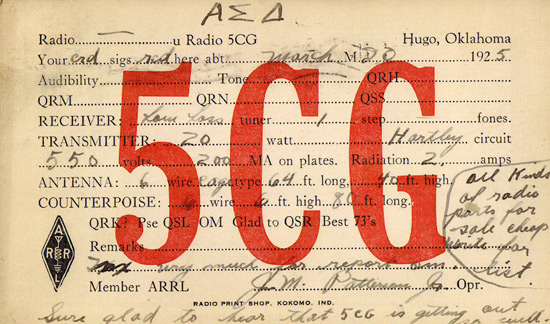 ΑΣΔ
Radio u Radio 5CG Hugo, Oklahoma
Your crd sigs rcd here abt March M 1925
Audibility Tone QRH
QRM QRN QSS
RECEIVER: Low Loss tuner 1 step fones.
TRANSMITTER: 20 watt Hartley circuit
550 volts 200 MA on plates. Radiation 2. amps
ANTENNA: 6 wire cage type 64 ft. long, 40 ft. high.
COUNTERPOISE: wire ft. high 80 ft. long.
QRK? Pse QSL OM Glad to QSR Best 73's
Remarks
very much for report om.
Member ARRL J. M. Patterson Jr. Opr.
5CG
All Kinds
of radio
parts for
sale cheap
write for
list.
A
R R
L
RADIO PRINT SHOP, KOKOMO, IND.
Sure glad to hear that 5CG is getting out
so well.